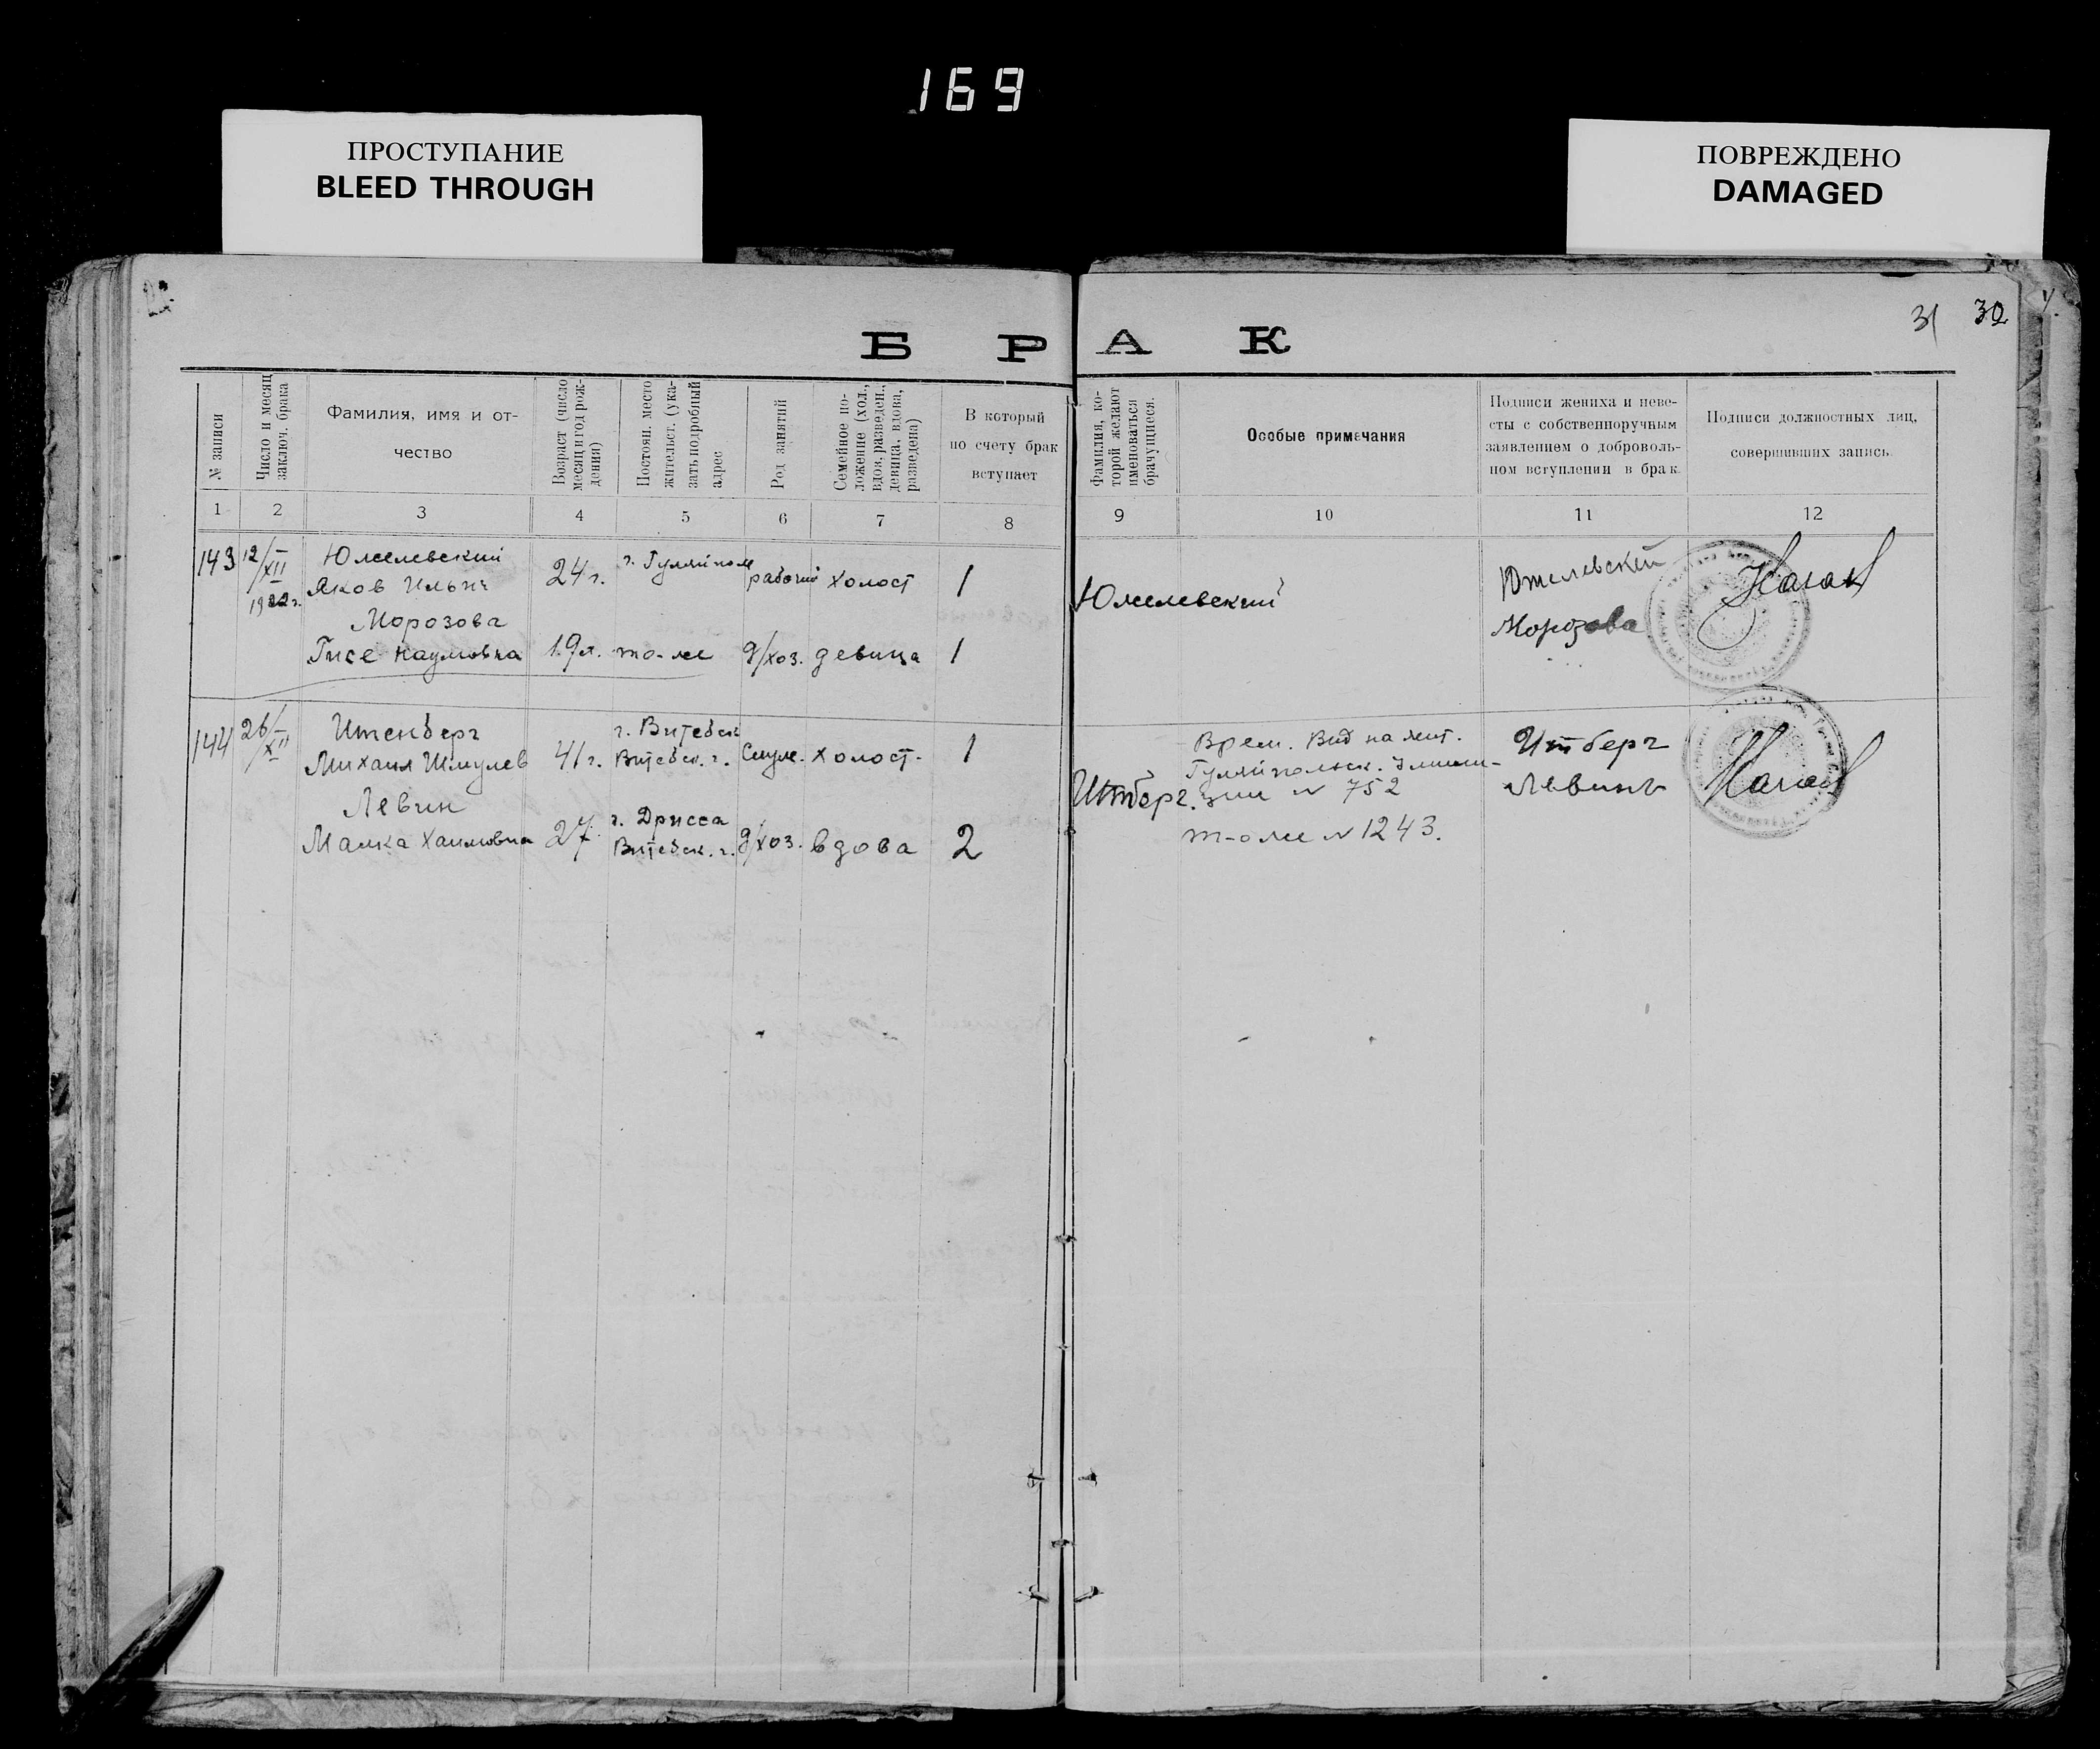 169
ПРОСТУПАНИЕ
BLEED THROUGH
ПОВРЕЖДЕНО
DAMAGED
31 30
БРАК
№ записи
Число и месяц
заключ. брака
Фамилия, имя и от-
чество
Возраст (число
месяц и год рож-
дения)
Постоян. место
жительст. (ука-
зать подробный
адрес
Род занятий
Семейное по-
ложение (хол.,
вдов, разведен.,
девица, вдова,
разведена)
В который
по счету брак
вступает
Фамилия, ко-
торой желают
именоваться
брачущиеся.
Особые примечания
Подписи жениха и неве-
сты с собственноручным
заявлением о доброволь-
ном вступлении в брак.
Подписи должностных лиц,
совершивших запись.
1 2 3 4 5 6 7 8 9 10 11 12
143
12/XII
1922 г.
Южелевский
Яков Ильич
24 г.
г. Гуляйполе
рабочий
холост
1
Морозова
Гисе Наумовна
19 л.
то-же
д/хоз.
девица
1
Южелевский
Южелевский
Морозова
144
26/XII
Итенберг
Михаил Шмулев
41 г.
г. Витебск
Витебск. г.
Служ.
холост.
1
Левин
Малка Хаимовна
27
г. Дрисса
Витебск. г.
д/хоз.
вдова
2
Итберг.
Врем. Вид на жит.
Гуляйпольск. Улили-
ции № 752
т-оже № 1243.
Итберг
Левинъ